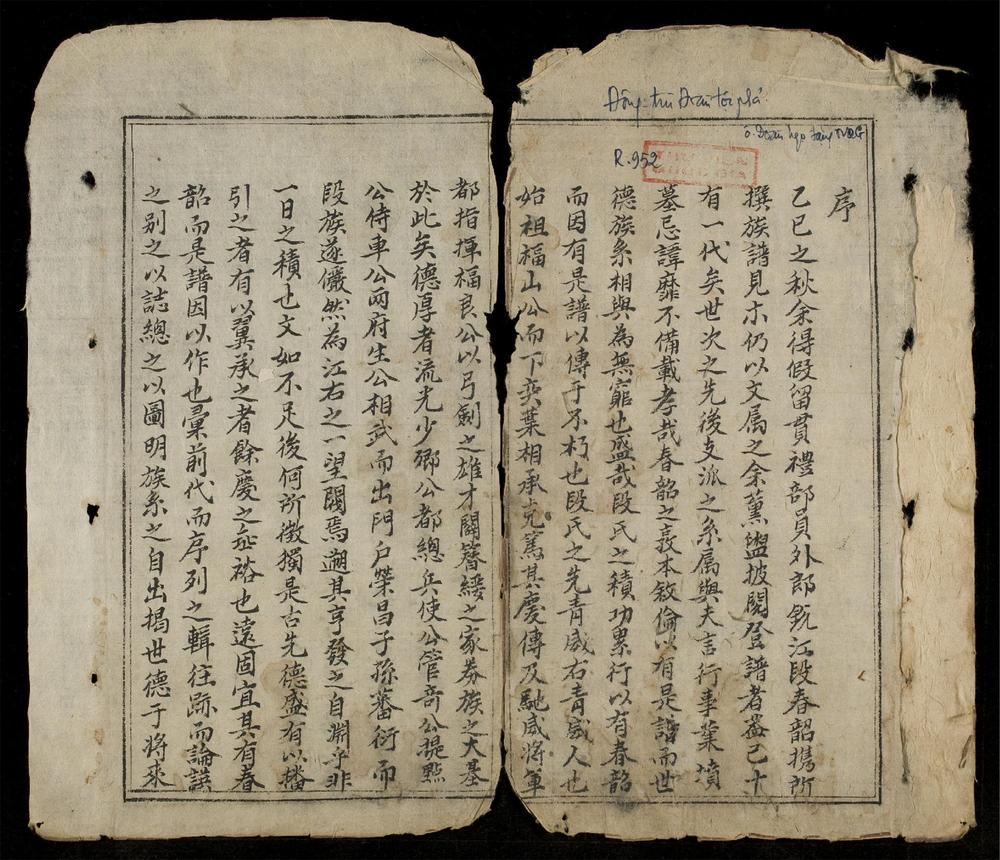 R.952
序
乙巳之秋余得假留貫禮部員外郎甑江段春韶携所
撰族譜見示仍以文属之余薰盥披閱登譜者蓋已十
有一代矣世次之先後支派之系属與夫言行事業墳
墓忌諱靡不備載孝哉春韶之敦本敘倫以有是譜而世
德族系相與為無窮也盛哉段氏之積功累行以有春韶
而因有是譜以傳于不朽也段氏之先青威右青威人也
始祖福山公而下奕葉相承克篤其慶傳及馳威將軍
都指揮福良公以弓劍之雄才開簪綬之家券族之大基
於此矣德厚者流光少鄉公都總兵使公管奇公提點
公侍車公兩府生公相武而出門户榮昌子孫蕃衍而
段族遂儼然為江右之一望閥焉遡其亨發之自淵乎非
一日之積也文如不足後何所徵獨是古先德盛有以播
引之者有以翼承之者餘慶之祉裕也遠固宜其有春
韶而是譜因以作也彙前代而序列之輯往跡而論譔
之别之以誌總之以圖明族系之自出揭世德于將來